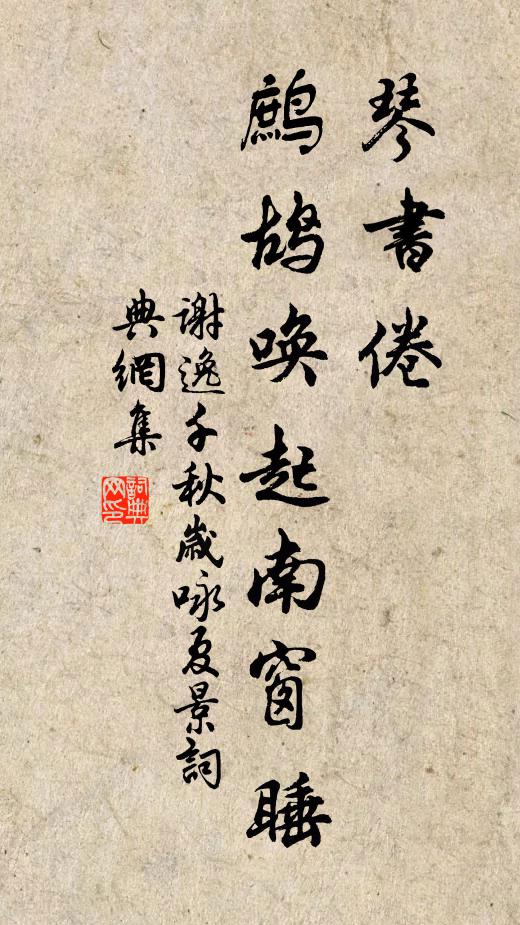 琴書倦
鷓鴣唤起南窗睡
謝逸千秋歲咏夏景詞
典網集
詞典网印